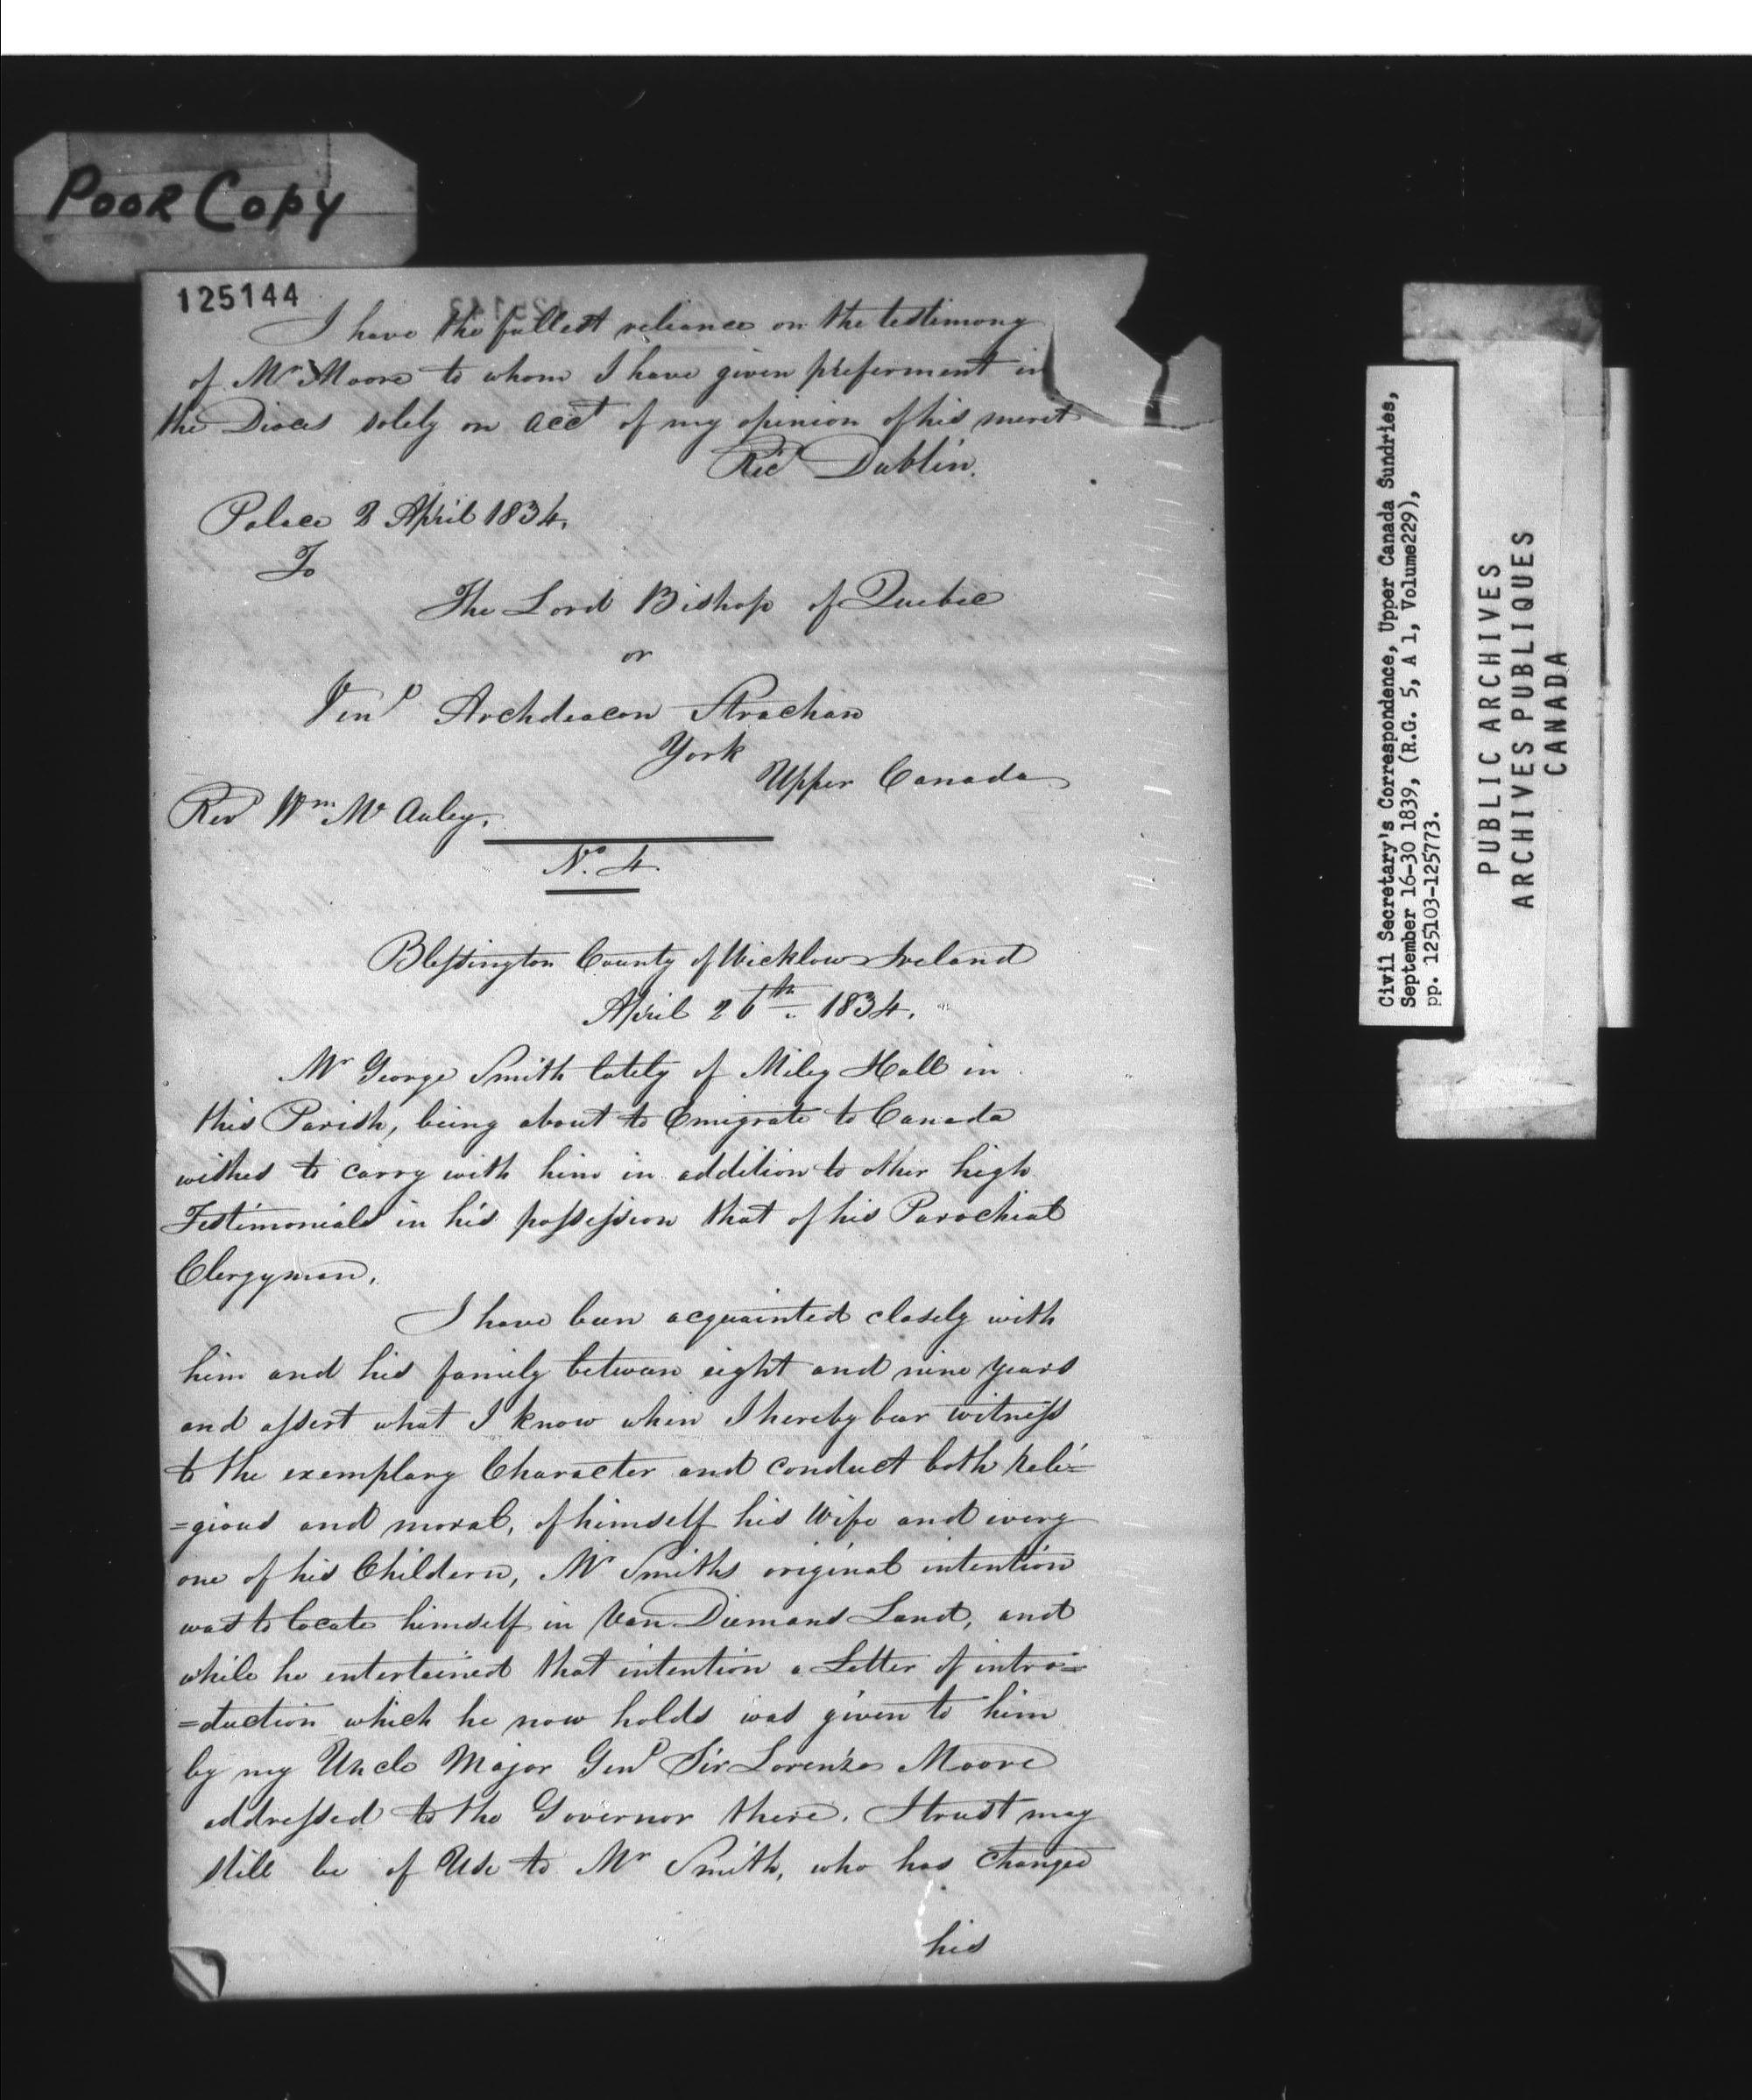 POOR COPY
125144
I have the fullest reliance on the testimony
of Mr Moore to whom I have given preferment in
the Dioces solely on acct of my opinion of his merit
Ricd Dublin.
Palace 2 April 1834.
To
The Lord Bishop of Quebec
or
Venl Archdeacon Strachan
York
Upper Canada
Revd Wm McAuley.
No. 4
Blessington County of Wicklow Ireland
April 26th. 1834.
Mr George Smith lately of Miley Hall in
this Parish, being about to Emigrate to Canada
wishes to carry with him in addition to other high
Testimonials in his possession that of his Parochial
Clergyman.
I have been acquainted closely with
him and his family between eight and nine years
and assert what I know when I hereby bear witness
to the exemplary Character and conduct both reli=
=gious and moral, of himself his Wife and every
one of his Childern, Mr Smiths original intention
was to locate himself in Van Diemans Land, and
while he entertained that intention a Letter of intro=
=duction which he now holds was given to him
by my Uncle Major Genl Sir Lorenzo Moore
addressed to the Governor there. I trust may
still be of Use to Mr Smith, who has changed
his
Civil Secretary's Correspondence, Upper Canada Sundries,
September 16-30 1839, (R.G. 5, A 1, Volume229),
pp. 125103-125773.
PUBLIC ARCHIVES
ARCHIVES PUBLIQUES
CANADA